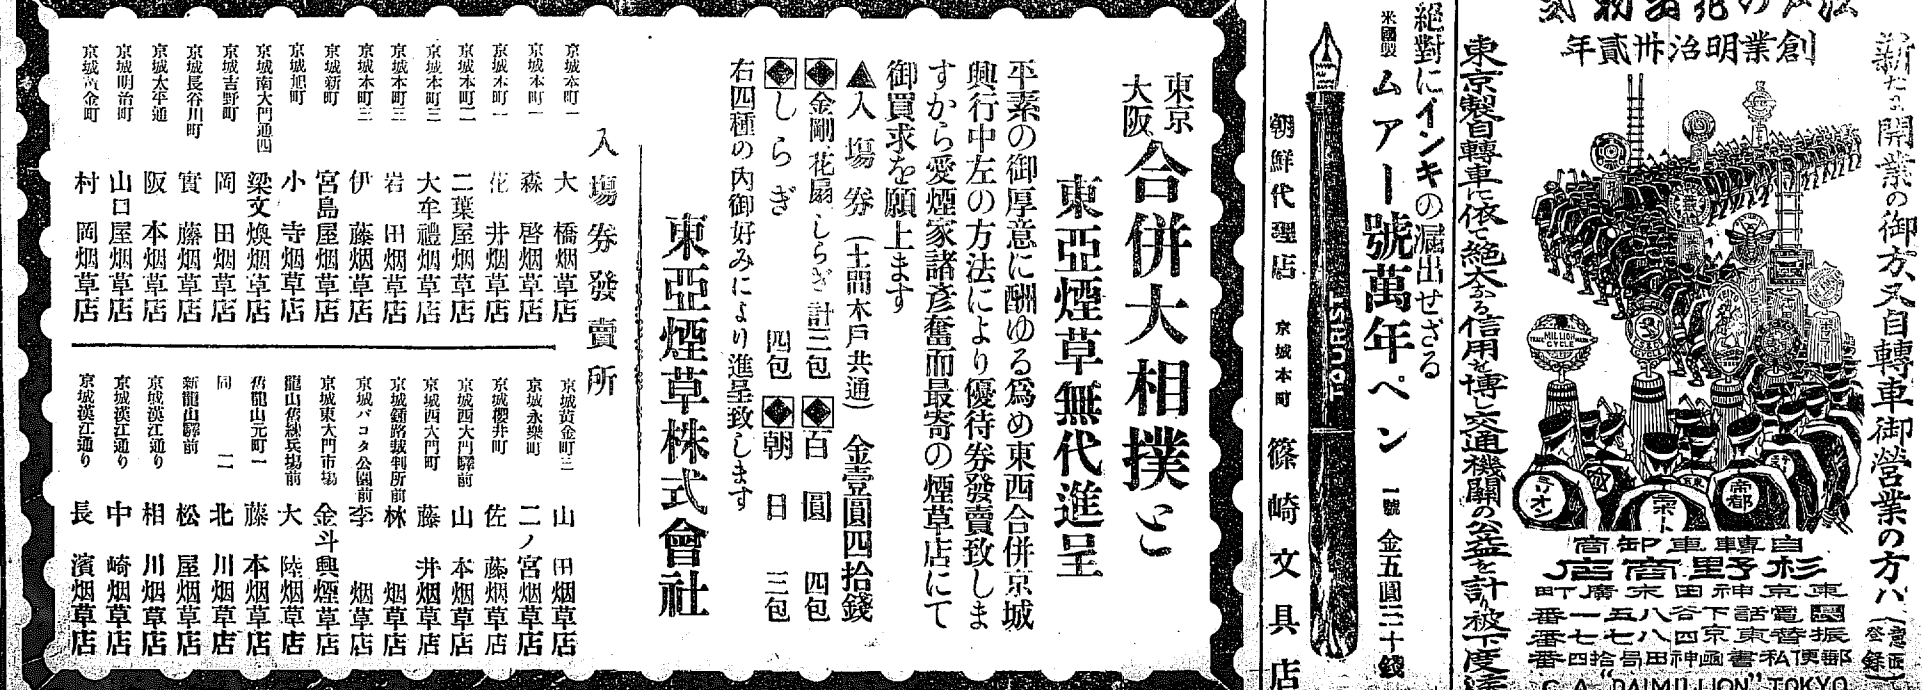 新たに開業の御方又自轉車御營業の方ハ
創業明治卅貳年
東京製自轉車に依て絶大なる信用を博し交通機關の公益を計り被下度
MILLION CYCLE
TRADE MARK
ミリオン
帝都
自轉車卸商
杉野商店
絶對にインキの漏出せざる
米國製
ムアー號萬年ペン
一號 金五圓三十錢
TOURIST
朝鮮代理店
京城本町
篠崎文具店
東京
大阪
合併大相撲と
東亞煙草無代進呈
平素の御厚意に酬ゆる爲め東西合併京城
興行中左の方法により優待券發賣致しま
すから愛煙家諸彦奮而最寄の煙草店にて
御買求を願上ます
▲入場券(土間木戸共通) 金壹圓四拾錢
◆金剛、花扇、しらぎ 計三包 ◆百圓 四包
◆しらぎ 四包 ◆朝日 三包
右四種の内御好みにより進呈致します
東亞煙草株式會社
入場券發賣所
京城本町一 大橋烟草店
京城本町一 森啓烟草店
京城本町一 花井烟草店
京城本町二 二葉屋烟草店
京城本町二 大牟禮烟草店
京城本町三 岩田烟草店
京城本町三 伊藤烟草店
京城新町 宮島屋烟草店
京城旭町 小寺烟草店
京城南大門通四 梁文煥烟草店
京城吉野町 岡田烟草店
京城長谷川町 實藤烟草店
京城太平通 阪本烟草店
京城明治町 山口屋烟草店
京城黃金町 村岡烟草店
京城黃金町三 山田烟草店
京城永樂町 二ノ宮烟草店
京城櫻井町 佐藤烟草店
京城西大門驛前 山本烟草店
京城西大門町 藤井烟草店
京城鍾路裁判所前 林烟草店
京城パコタ公園前 李烟草店
京城東大門市場 金斗興煙草店
龍山舊練兵場前 大陸烟草店
舊龍山元町一 藤本烟草店
同 二 北川烟草店
新龍山驛前 松屋烟草店
京城漢江通り 相川烟草店
京城漢江通り 中崎烟草店
京城漢江通り 長濱烟草店